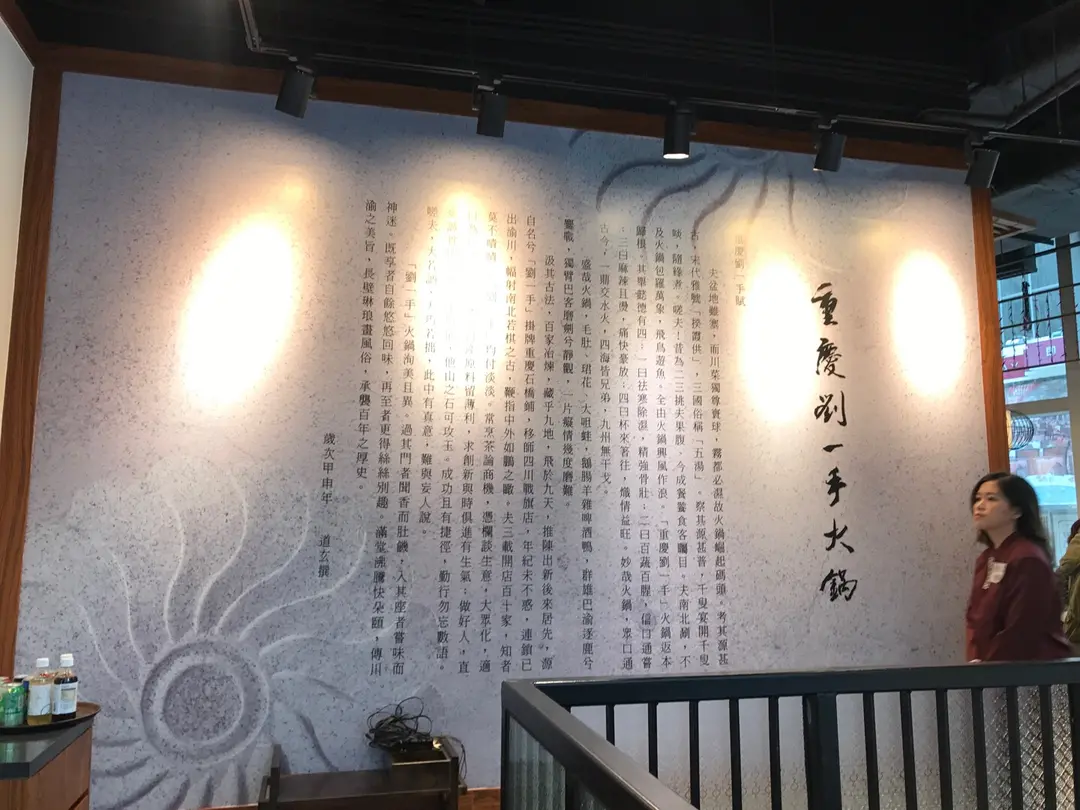 重慶劉一手火鍋
重慶劉一手賦
夫盆地雖寨，而川菜獨尊寰球，霧都必濕故火鍋崛起碼頭。考其源甚
古，宋代雅號「撥霞供」，三國俗稱「五湯」。察其源甚普，千叟宴開千叟
啖，隨緣煮。嗟夫！昔為二三挑夫果腹，今成饕餮食客矚目。夫南北涮，不
及火鍋包羅萬象，飛鳥遊魚，全由火鍋興風作浪。「重慶劉一手」火鍋返本
歸樸。其舉懿德有四：一曰祛寒除濕，精強骨壯；二曰百蔬百腥，信口通嘗
；三曰麻辣且燙，痛快豪放；四曰杯來箸往，熾情益旺。妙哉火鍋，眾口通
古今，一鼎交水火，四海皆兄弟，九州無干戈。
盛哉火鍋，毛肚、珺花、大咀蛙，鵝腸羊雜啤酒鴨，群雄巴渝逐鹿兮
鏖戰，獨臂巴客磨劍兮靜觀，一片癡情幾度磨難。
汲其古法，百家冶煉，藏乎九地，飛於九天，推陳出新後來居先，源
自名兮「劉一手」掛牌重慶石橋鋪，移師四川戰旗店，年紀未不惑，連鎖已
出渝川，幅射南北若棋之古，鞭指中外如鸝之瞰。夫三載開店百十家，知者
莫不嘖嘖 均付淡淡。常烹茶論商機，憑欄談生意，大眾化，適
原料留薄利，求創新與時俱進有生氣；做好人，直
他山之石可攻玉。成功且有捷徑，勤行勿忘數語。
嗟夫，大若拙，此中有真意，難與妄人說。
「劉一手」火鍋洵美且異。過其門者聞香而肚饑，入其座者嘗味而
神迷。既享者自餘悠悠回味，再至者更得絲絲別趣。滿堂沸騰快朵頤，傳川
渝之美旨，長壁琳琅畫風俗，承襲百年之厚史。
歲次甲申年 道玄撰